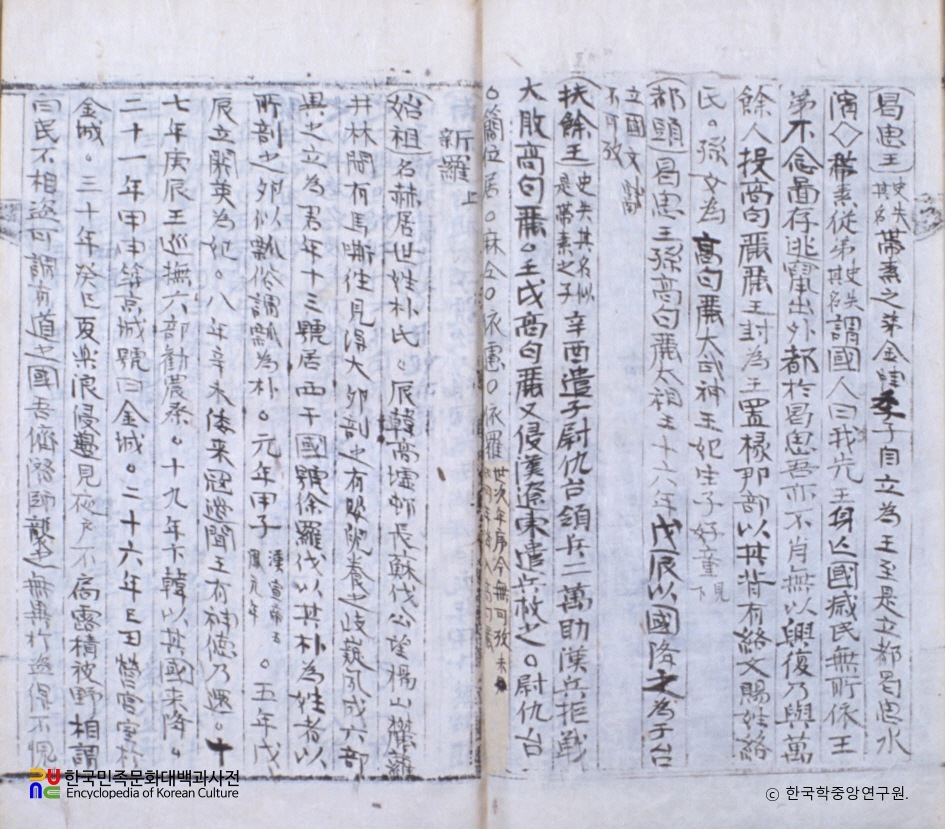 曷思王史失其名帶素之弟金蛙季子自立為王至是立都曷思水
濱◇帶素從弟史失其名謂國人曰我先王身亡國滅民無所依王
弟不念圖存逃竄出外都於曷思吾亦不肖無以興復乃與萬
餘人投高句麗麗王封為王置椽那部以其背有絡文賜姓絡
氏。孫女為高句麗大武神王妃生子好童見下
都頭曷思王孫高句麗太祖王十六年戊辰以國降之為于台
立國文獻
不可攷
扶餘王史失其名似是帶素之子辛酉遣子尉仇台領兵二萬助漢兵拒戰
大敗高句麗。壬戌高句麗又侵漢遼東遣兵救之。尉仇台
○簡位居○麻余○依慮○依羅世次年序今無可攷
新羅上
始祖名赫居世姓朴氏。辰韓高墟部長蘇伐公望楊山麓蘿
井林間有馬嘶往見得大卵剖之有嬰兒養之岐嶷夙成六部
異之立為君年十三號居西干國號徐羅伐以其朴為姓者以
所剖之卵似瓢俗謂瓢為朴。元年甲子漢宣帝五鳳元年。五年戊
辰立閼英為妃。八年辛未倭来寇邊聞王有神德乃還。十
七年庚辰王巡撫六部勸農桑。十九年卞韓以其國来降。
二十一年甲申築京城號曰金城。二十六年己丑營宮室於
金城。三十年癸巳夏樂浪侵邊見夜戶不扃露積被野相謂
曰民不相盜可謂有道之國吾儕潛師襲之無異於盜得不愧
한국민족문화대백과사전
Encyclopedia of Korean Culture
ⓒ 한국학중앙연구원.